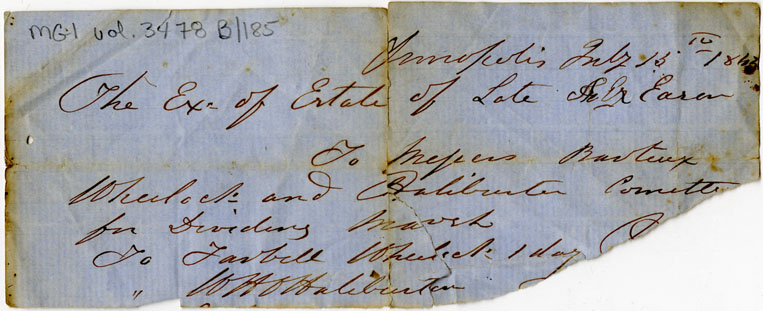 MG-1 vol. 3478 B/185
Annopolis July 15th 18
The Exr of Estate of Late Eason
To Messrs Banteux
Wheelock and Haliburton Comette
for Dividing Marsh
To Tarbell Wheelock 1 day
" W H O Haliburton